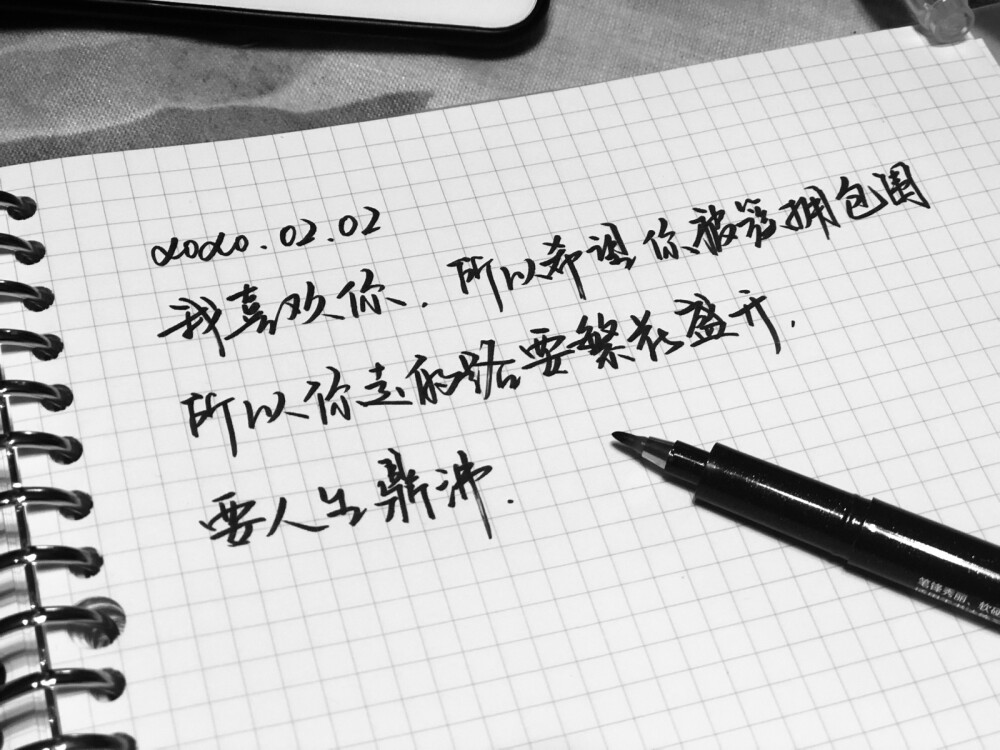 2020.02.02
我喜欢你.所以希望你被簇拥包围
所以你走的路要繁花盛开.
要人生鼎沸.
笔锋秀丽、软硬